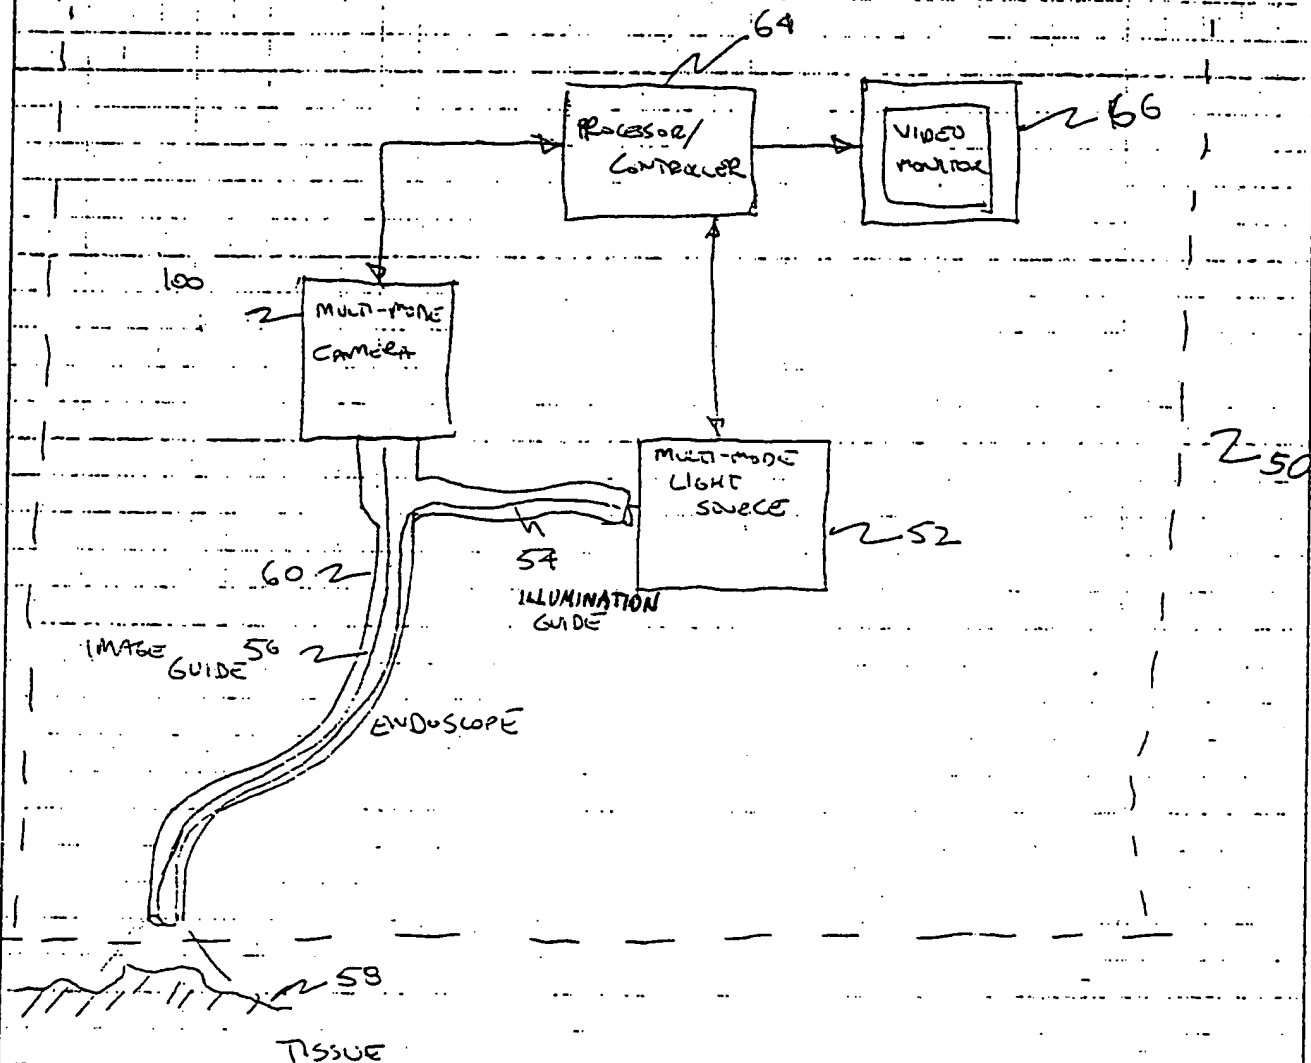 64
PROCESSOR/
CONTROLLER
VIDEO
MONITOR
66
100
MULTI-MODE
CAMERA
MULTI-MODE
LIGHT
SOURCE
50
52
54
ILLUMINATION
GUIDE
60
IMAGE
GUIDE 56
ENDOSCOPE
58
TISSUE